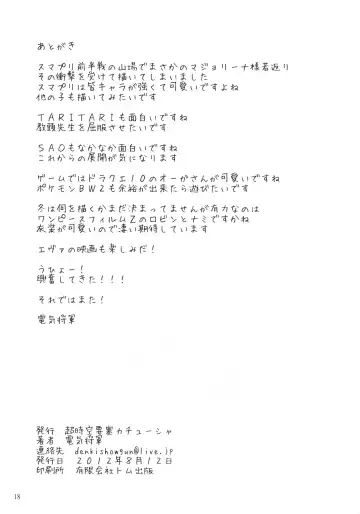 あとがき
スマプリ前半戦の山場でまさかのマジョリーナ様若返り
その衝撃を受けて描いてしまいました
スマプリは皆キャラが強くて可愛いですよね
他の子も描いてみたいです
TARITARIも面白いですね
教頭先生を屈服させたいです
SAOもなかなか面白いですね
これからの展開が気になります
ゲームではドラクエ10のオーガさんが可愛いですね
ポケモンBW2も余裕が出来たら遊びたいです
冬は何を描くかまだ決まってませんが有力なのは
ワンピースフィルムZのロビンとナミですかね
衣装が可愛いので凄い期待しています
エヴァの映画も楽しみだ！
うひょー！
興奮してきた！！！
それではまた！
電気将軍
発行 超時空要塞カチューシャ
著者 電気将軍
連絡先 denkishowgun@live.jp
発行日 2012年8月12日
印刷所 有限会社トム出版
18